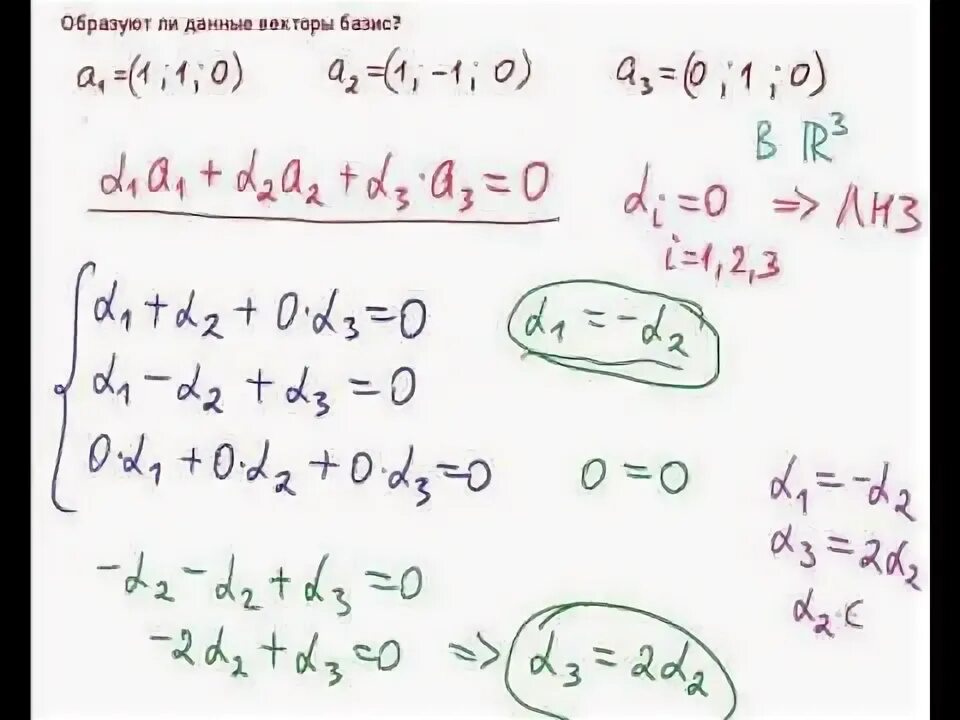 Образуют ли данные векторы базис?
a₁=(1;1;0) a₂=(1;-1;0) a₃=(0;1;0)
В ℝ³
α₁a₁+α₂a₂+α₃·a₃=0
αᵢ=0 => ЛНЗ
i=1,2,3
α₁+α₂+0·α₃=0
α₁=-α₂
α₁-α₂+α₃=0
0·α₁+0·α₂+0·α₃=0
0=0
α₁=-α₂
α₃=2α₂
α₂ є
-α₂-α₂+α₃=0
-2α₂+α₃=0 => α₃=2α₂